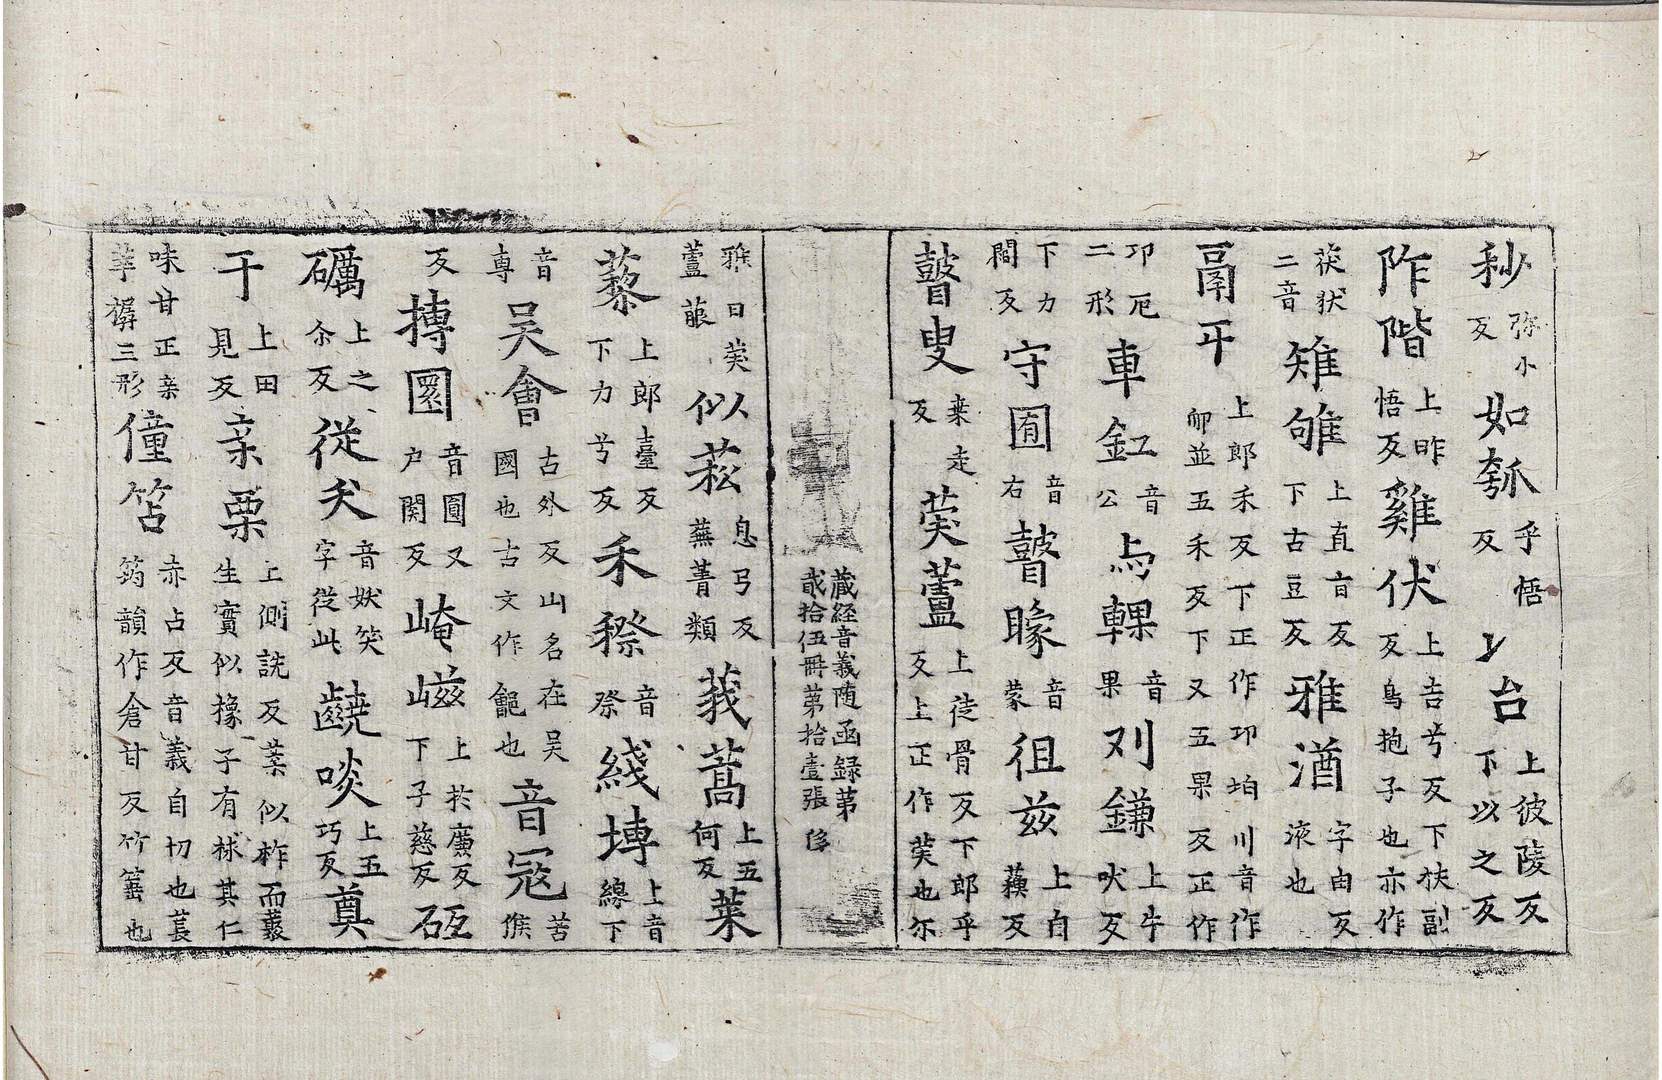 秒弥小反如瓠乎悟反丷台上彼陵反下以之反
阼階上昨悟反雞伏上吉兮反下扶副反鳥抱子也亦作
茯狀二音雉雊上直旨反下古豆反雅酒字由反液也
鬲丏上郎禾反下正作卭坥川音作卹並五禾反下又五果反正作
卭戹二形車釭音公与輠音果刈鎌上牛吠反
下力閻反守囿音右瞽矇音蒙徂兹上自蘓反
瞽叟桒走反葖蘆上徒骨反下郎乎反上正作葖也尔
藏経音義随函録第貳拾伍冊第拾壹張
雅曰葖蘆萉似菘息弓反蕪菁類莪蒿上五何反菜
藜上郎臺反下力兮反禾穄音祭綫塼上音線下
音專吳會古外反山名在吳國也古文作䶐也音冦苦候
反摶圜音圓又户関反崦嵫上扵廉反下子慈反砥
礪上之尒反從犬音妖笑字從此齩啖上五巧反奠
干上田見反亲栗上側詵反葉似柞而叢生實似橡子有梂其仁
味甘正亲莘㯕三形僮笘赤占反音義自切也萇筠韻作倉甘反竹箠也